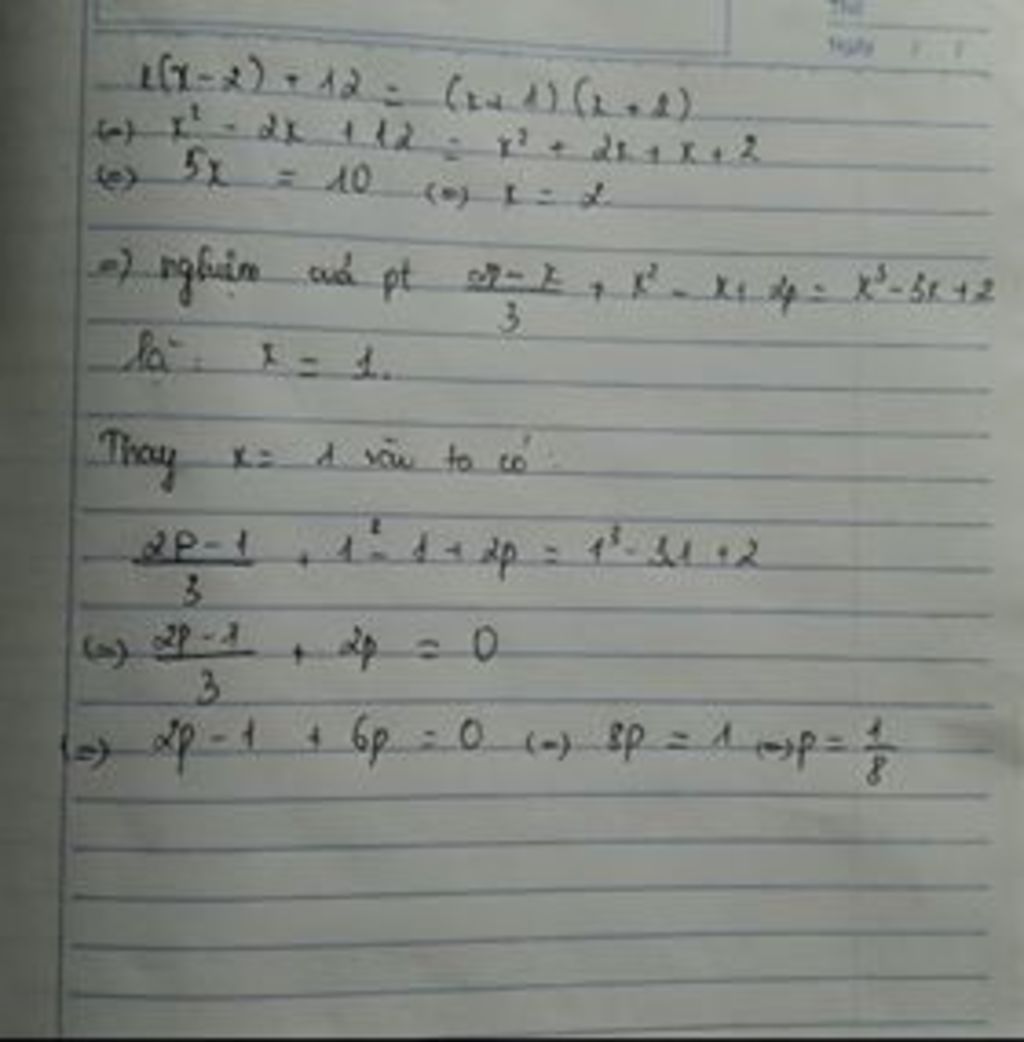 Thứ
Ngày / /
x(x-2) + 12 = (x+1)(x+2)
(=) x² - 2x + 12 = x² + 2x + x + 2
(=) 5x = 10 (=) x = 2
=) nghiệm của pt \frac{2p - x}{3} + x² - x + 2p = x³ - 3x + 2
là: x = 1.
Thay x = 1 vào ta có:
\frac{2p - 1}{3} + 1² - 1 + 2p = 1³ - 3.1 + 2
(=) \frac{2p - 1}{3} + 2p = 0
(=) 2p - 1 + 6p = 0 (=) 8p = 1 (=) p = \frac{1}{8}